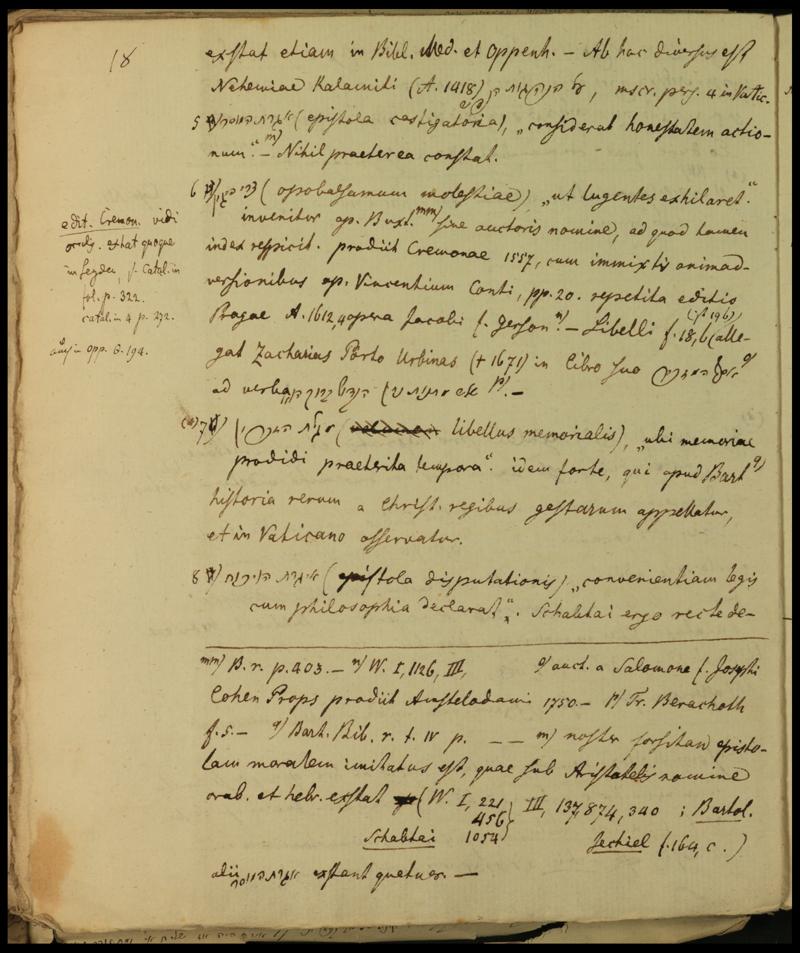 18
exstat etiam in Bibl. Med. et Oppenh. – Ab hac diversus est
Nehemiae Kalamiti (A. 1418) mscr. pers. 4 in Vatic.
5 אגרת המוסר (epistola castigatoria), „considerat honestatem actio-
num“. m) – Nihil praeterea constat.
6 צרי היגון (opobalsamum molestiae) „ut lugentes exhilaret.“
invenitur ap. Buxt. mm) sine auctoris nomine, ad quod tamen
index respicit. prodiit Cremonae 1557, cum immixtis animad-
versionibus ap. Vincentium Conti, pp. 20. repetita editio
Pragae A. 1612, 4 opera Jacobi f. Gerson n). – Libelli f. 18, b (alle-
gat Zacharias Porto Urbinas († 1671) in libro suo o)
ad verba etc p). –
edit. Cremon. vidi
oculis. extat quoque
in Leyden, f. Catal. in
fol. p. 322.
catal. in 4 p. 272.
in opp. 6. 194.
7 מגלת (libellus memorialis), „ubi memoriae
prodidi praeterita tempora“. idem forte, qui apud Bart q)
historia rerum a Christ. regibus gestarum appellatur,
et in Vaticano asservatur.
8 אגרת הויכוח (epistola disputationis) „convenientiam legis
cum philosophia declarat“. Schabtai ergo recte de-
mm) B. r. p. 403. – n) W. I, 1126, III, o) auct. a Salomone f. Josephi
Cohen Props prodiit Amstelodami 1750. – p) Tr. Berachoth
f. 5. – q) Bart. Bib. r. t. IV p. – – m) noster forsitan episto-
lam moralem imitatus est, quae sub Aristotelis nomine
arab. et hebr. exstat (W. I, 221 III, 137, 874, 340 ; Bartol.
456
Schabtai 1054 Jechiel f. 164, c. )
alii אגרת המוסר exstant quatuor. –